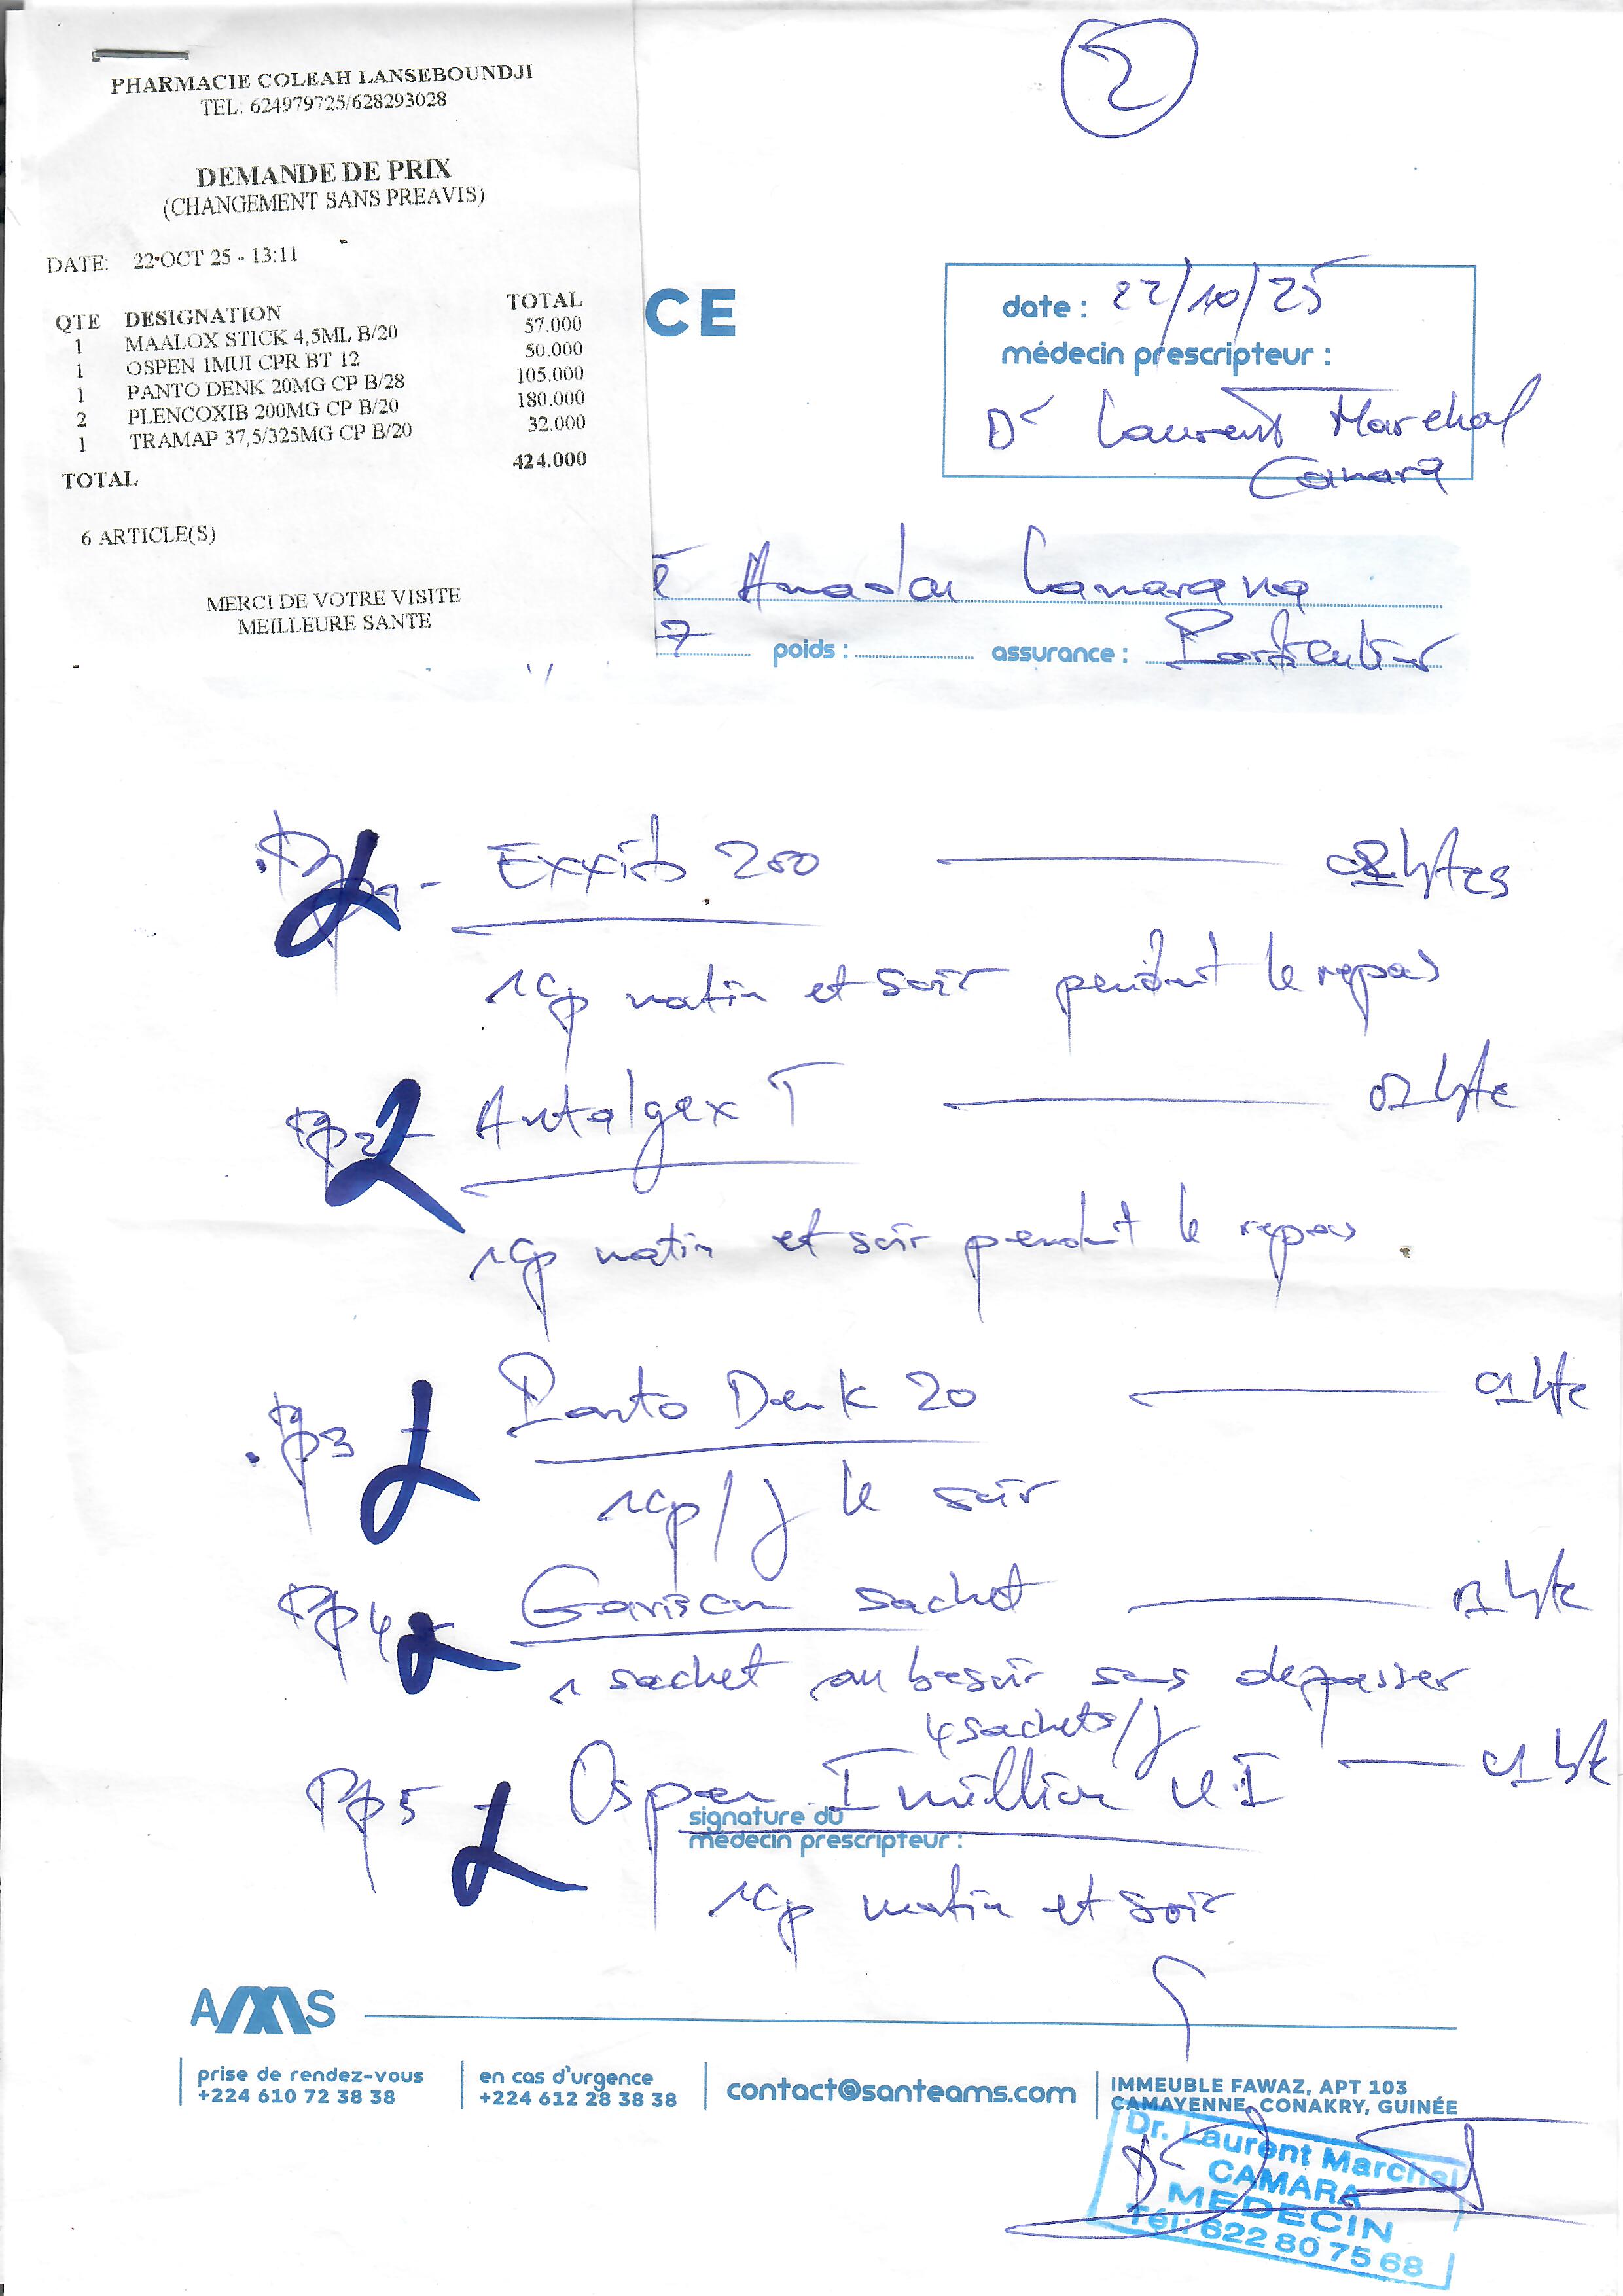 2
PHARMACIE COLEAH LANSEBOUNDJI
TEL: 624979725/628293028
DEMANDE DE PRIX
(CHANGEMENT SANS PREAVIS)
DATE: 22 OCT 25 - 13:11
QTE DESIGNATION TOTAL
1 MAALOX STICK 4,5ML B/20 57.000
1 OSPEN 1MUI CPR BT 12 50.000
1 PANTO DENK 20MG CP B/28 105.000
2 PLENCOXIB 200MG CP B/20 180.000
1 TRAMAP 37,5/325MG CP B/20 32.000
TOTAL 424.000
6 ARTICLE(S)
MERCI DE VOTRE VISITE
MEILLEURE SANTE
CE
date : 22/10/25
médecin prescripteur :
Dr Laurent Marchal
Camara
é Amadou
7 poids : assurance :
Exxib 200 02 btes
1cp matin et soir pendant le repas
Rp2- Antalgex T 01 bte
1cp matin et soir pendant le repas
Rp3 Panto Denk 20 01 bte
1cp/j le soir
Rp4 Gaviscon sachet 01 bte
1 sachet au besoin sans depasser
4 sachets/j
Rp5 Ospen 1 million UI 01 bte
signature du
médecin prescripteur :
1cp matin et soir
AMS
prise de rendez-vous
+224 610 72 38 38
en cas d'urgence
+224 612 28 38 38
contact@santeams.com
IMMEUBLE FAWAZ, APT 103
CAMAYENNE, CONAKRY, GUINÉE
Dr. Laurent Marchal
CAMARA
MEDECIN
Tél: 622 80 75 68